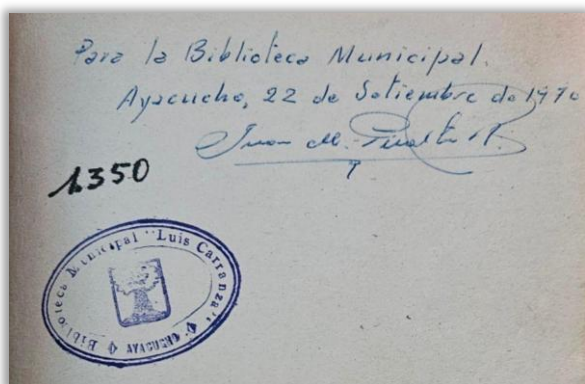 Para la Biblioteca Municipal.
Ayacucho, 22 de Setiembre de 1970
Juan M.
1350
Biblioteca Municipal "Luis Carranza"
AYACUCHO